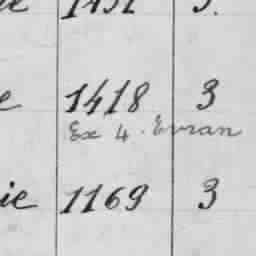 1418 3
Ex 4. Evran
ie 1169 3